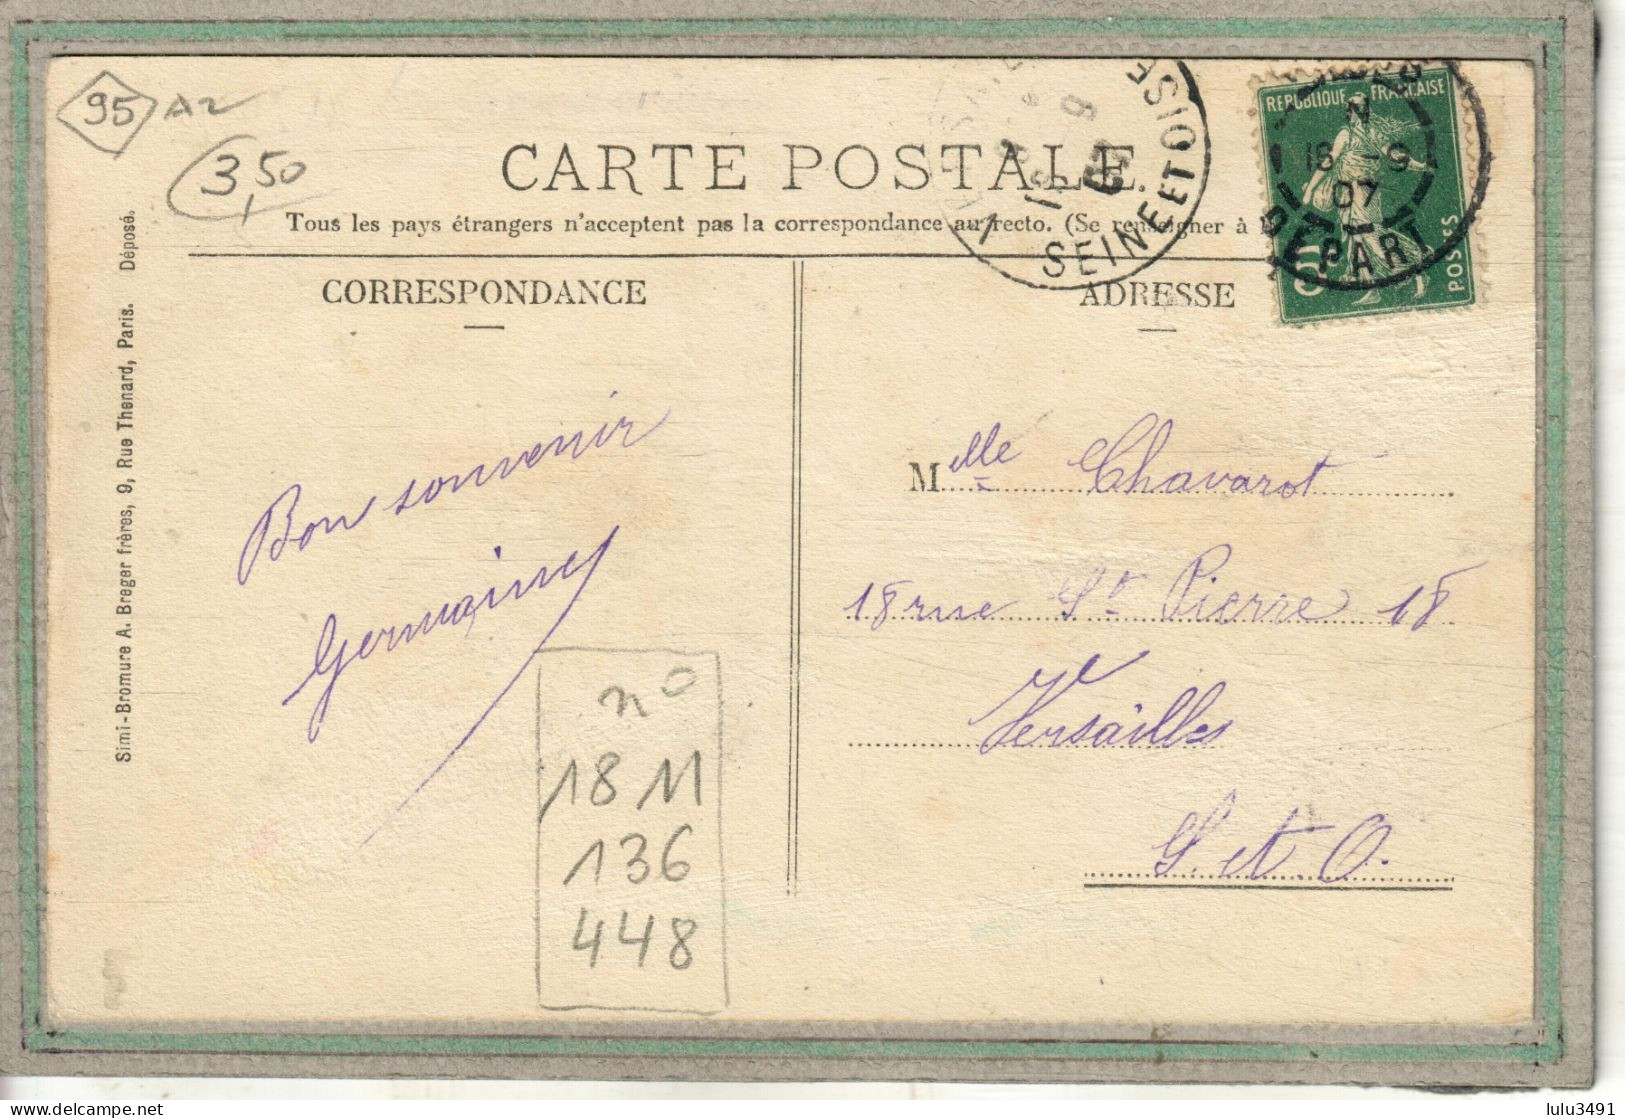 95 A2
3,50
CARTE POSTALE.
Tous les pays étrangers n'acceptent pas la correspondance au recto. (Se renseigner à
CORRESPONDANCE
ADRESSE
SEINE ET OISE
REPUBLIQUE FRANÇAISE
POSTES
N
18 -9
07
DEPART
Simi-Bromure A. Breger frères, 9, Rue Thenard, Paris. Déposé.
Bon souvenir
Germaine
Melle Chavarot
18 rue St Pierre 18
Versailles
S. et O.
no
18 11
136
448
delcampe.net
lulu3491